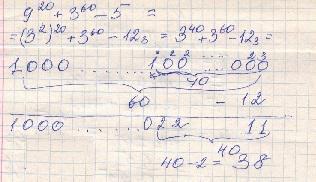 9^20 + 3^60 - 5 =
= (3^2)^20 + 3^60 - 12_3 = 3^40 + 3^60 - 12_3 =
1000 ........ 100 .... 000
40
60 - 12
1000 ........ 022 11
40
40 - 2 = 38